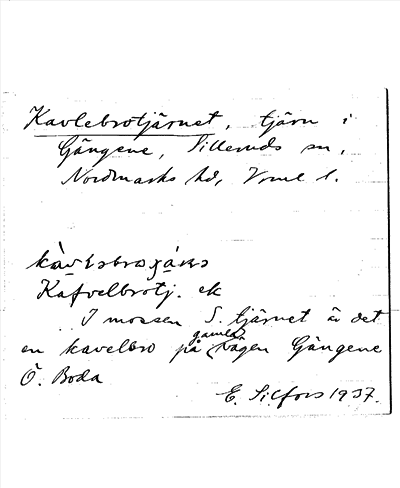 Kavlebrotjärnet, tjärn i
Gängene, Silleruds sn,
Nordmarks hd, Vrml l.
Kafvelbrotj. ek
I mossen S. tjärnet är det
en kavelbro på gamla vägen Gängene
Ö. Boda
E. Silfors 1937.